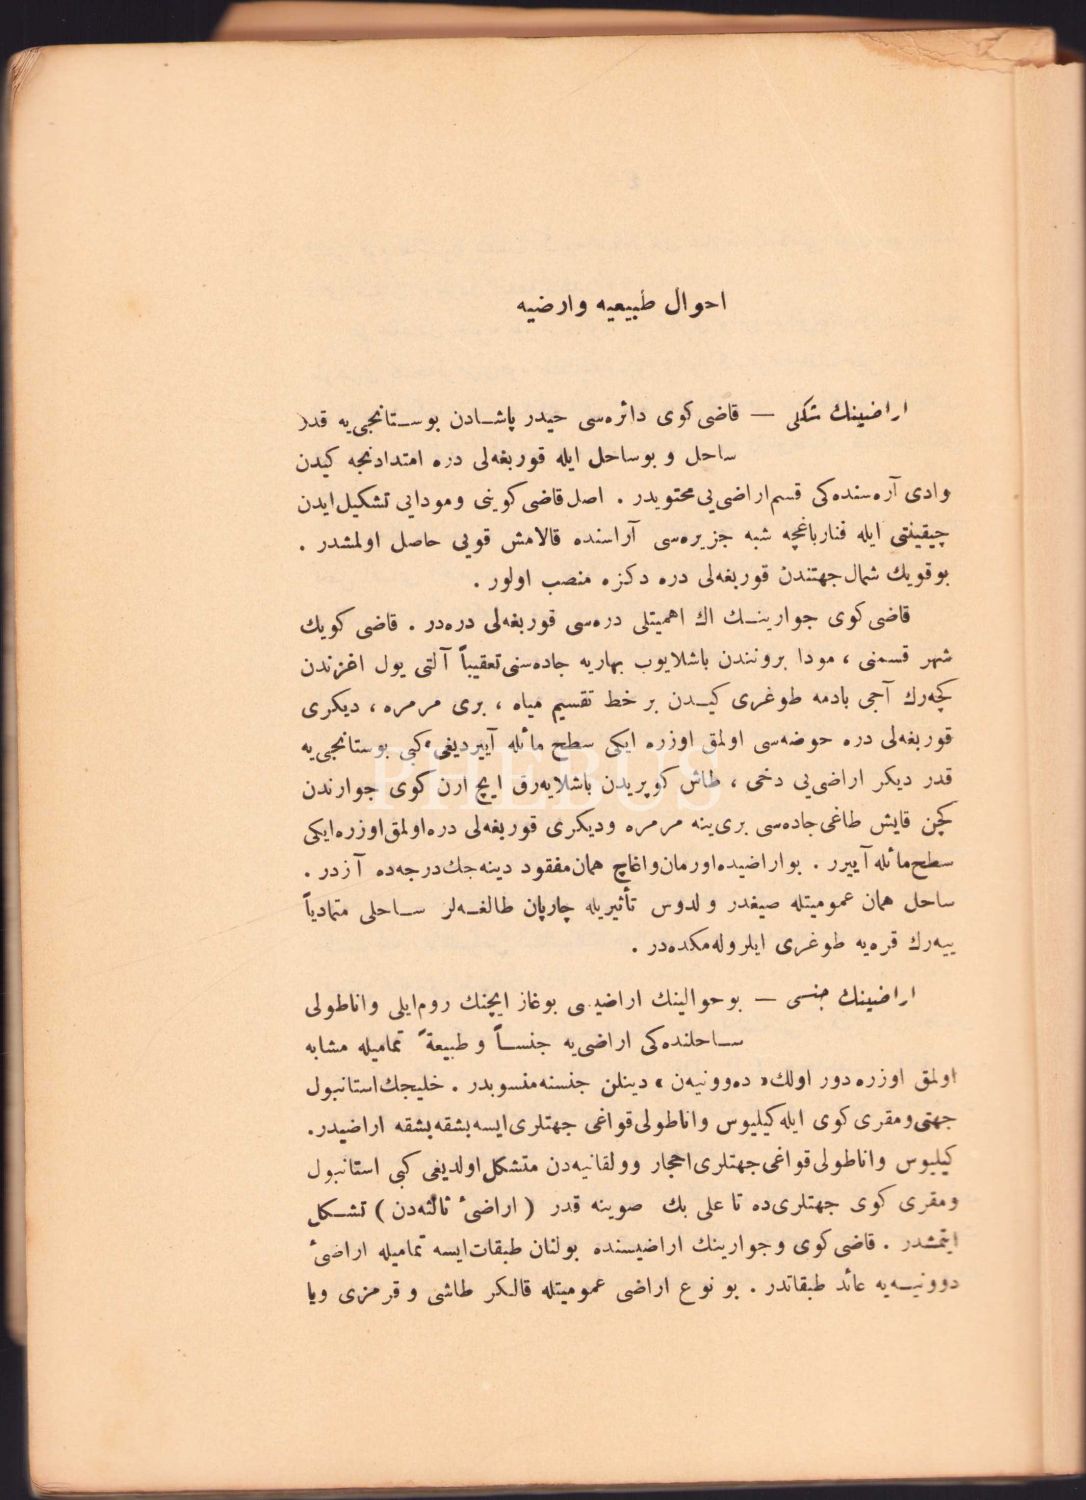 احوال طبيعيه وارضيه
اراضينك شكلى — قاضى‌كوى دائره‌سى حيدر پاشادن بوستانجى‌يه قدر
ساحل و بوساحل ايله قوربغه‌لى دره امتدادنجه كيدن
وادى آره‌سنده‌كى قسم اراضى‌يى محتويدر . اصل قاضى‌كوينى ومودايى تشكيل ايدن
چيقينتى ايله فنارباغچه شبه جزيره‌سى آراسنده قالامش قويى حاصل اولمشدر .
بوقويك شمال جهتندن قوربغه‌لى دره دكزه منصب اولور .
قاضى‌كوى جوارينك اك اهميتلى دره‌سى قوربغه‌لى دره‌در . قاضى كويك
شهر قسمنى ، مودا بروننندن باشلايوب بهاريه جاده‌سنى تعقيباً آلتى يول اغزندن
كچه‌رك آجى بادمه طوغرى كيدن بر خط تقسيم مياه ، برى مرمره ، ديكرى
قوربغه‌لى دره حوضه‌سى اولمق اوزره ايكى سطح مائله آييرديغى كبى بوستانجى‌يه
قدر ديكر اراضى‌يى دخى ، طاش كوپريدن باشلايه‌رق ايچ ارن كوى جوارندن
كچن قايش طاغى جاده‌سى برى‌ينه مرمره وديكرى قوربغه‌لى دره اولمق اوزره ايكى
سطح مائله آييرر . بواراضيده اورمان واغاچ همان مفقود دينه‌جك درجه‌ده آزدر .
ساحل همان عموميتله صيغدر و لدوس تأثيريله چارپان طالغه‌لر ساحلى متمادياً
ييه‌رك قره‌يه طوغرى ايلروله‌مكده‌در .
اراضينك جنسى — بوحوالينك اراضيسى بوغاز ايچنك روم‌ايلى واناطولى
ساحلنده‌كى اراضى‌يه جنساً و طبيعةً تماميله مشابه
اولمق اوزره دور اولك « ده‌وونيه‌ن » دينلن جنسنه منسوبدر . خليجك استانبول
جهتى ومقرى كوى ايله كيليوس واناطولى قواغى جهتلرى ايسه بشقه بشقه اراضيدر.
كيليوس واناطولى قواغى جهتلرى احجار وولقانيه‌دن متشكل اولديغى كبى استانبول
ومقرى كوى جهتلرى‌ده تا على بك صوينه قدر ( اراضئ ثالثه‌دن ) تشكل
ايتمشدر . قاضى‌كوى وجوارينك اراضيسنده بولنان طبقات ايسه تماميله اراضئ
دوونيه‌يه عائد طبقاتدر . بو نوع اراضى عموميتله قالكر طاشى و قرمزى ويا
PHEBUS